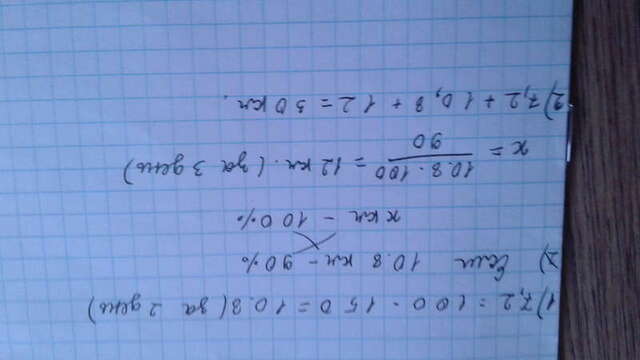 1) 7,2 = 100 · 150 = 10.8 (за 2 день)
2) Если 10.8 км – 90%
х км – 100%
х = 10.8 · 100 / 90 = 12 км. (за 3 день)
2) 7,2 + 10,8 + 12 = 30 км.